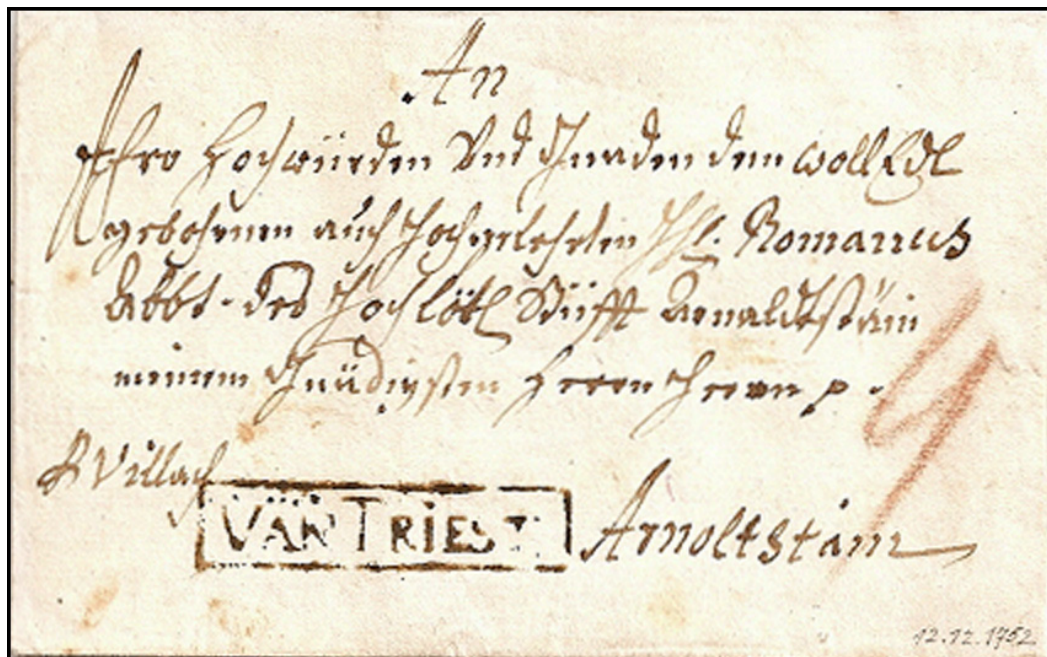 An
Ihro Hochwürden Und Gnaden dem WollEdl
gebohrnen auch Hochgelehrten Hl. Romanus
Abbt des Hochlöbl Stüfft Arnaldtstäin
meinem Gnädigsten Herrn Herrn p.
Villach
VAN TRIEST
Arnoltstain
9
12.12.1752